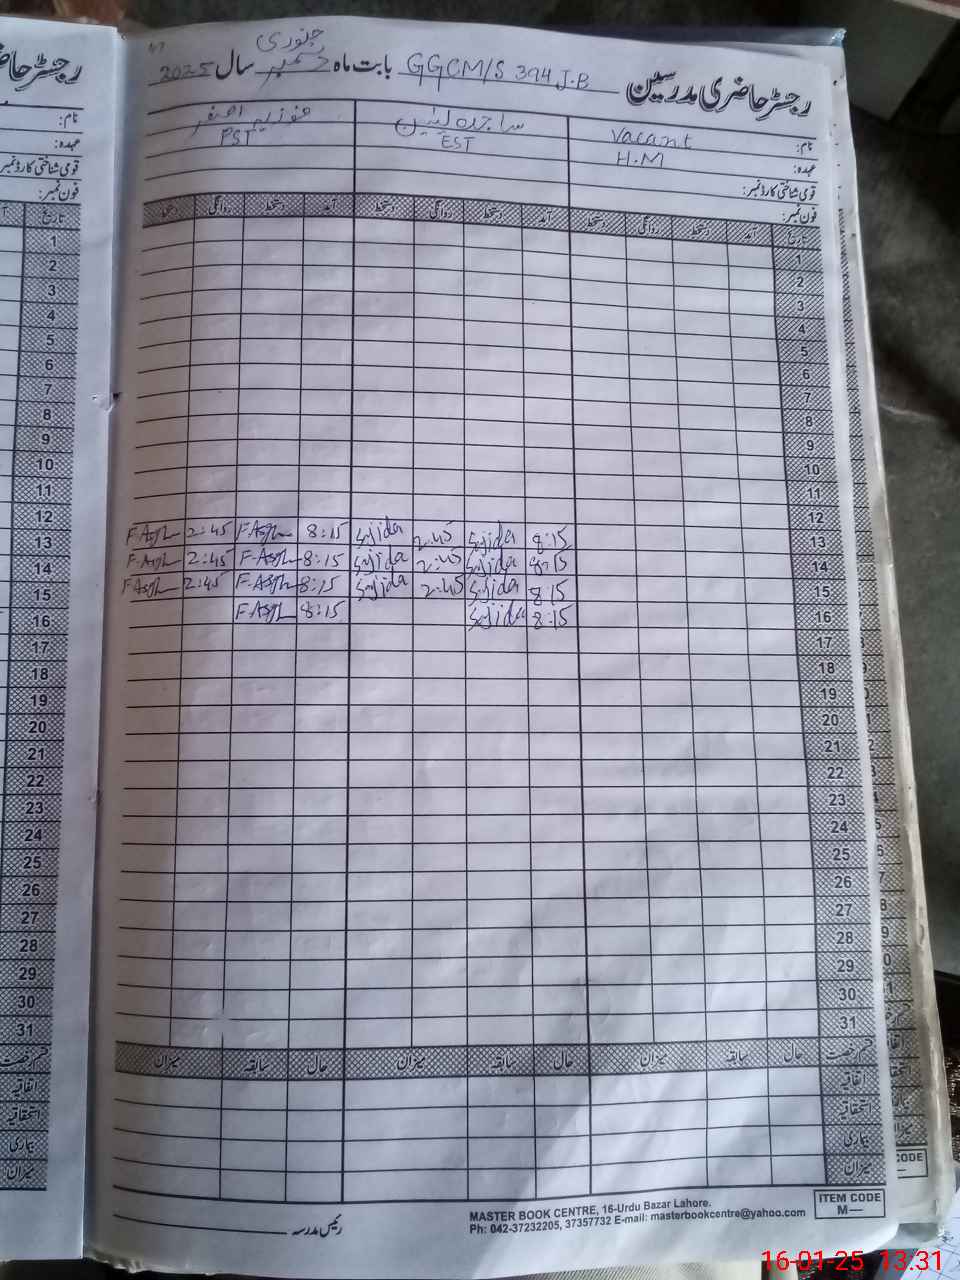 رجسٹر حاضری مدرسین GGCM/S 394 J.B بابت ماہ جنوری سال 2025
نام: Vacant ساجدہ یٰسین فوزیہ اصغر
عہدہ: H.M EST PST
قومی شناختی کارڈ نمبر:
فون نمبر:
تاریخ آمد دستخط روانگی دستخط آمد دستخط روانگی دستخط آمد دستخط روانگی دستخط
1
2
3
4
5
6
7
8
9
10
11
12
13 8:15 Sajida 2:45 Sajida 8:15 F.Asgh 2:45 F.Asgh
14 8:15 Sajida 2:45 Sajida 8:15 F.Asgh 2:45 F.Asgh
15 8:15 Sajida 2:45 Sajida 8:15 F.Asgh 2:45 F.Asgh
16 8:15 Sajida 8:15 F.Asgh
17
18
19
20
21
22
23
24
25
26
27
28
29
30
31
قسم رخصت حال سابقہ میزان حال سابقہ میزان حال سابقہ میزان
اتفاقیہ
استحقاقیہ
بیماری
میزان
رئیس مدرسہ
MASTER BOOK CENTRE, 16-Urdu Bazar Lahore.
Ph: 042-37232205, 37357732 E-mail: masterbookcentre@yahoo.com
ITEM CODE
M—
16-01-25 13.31